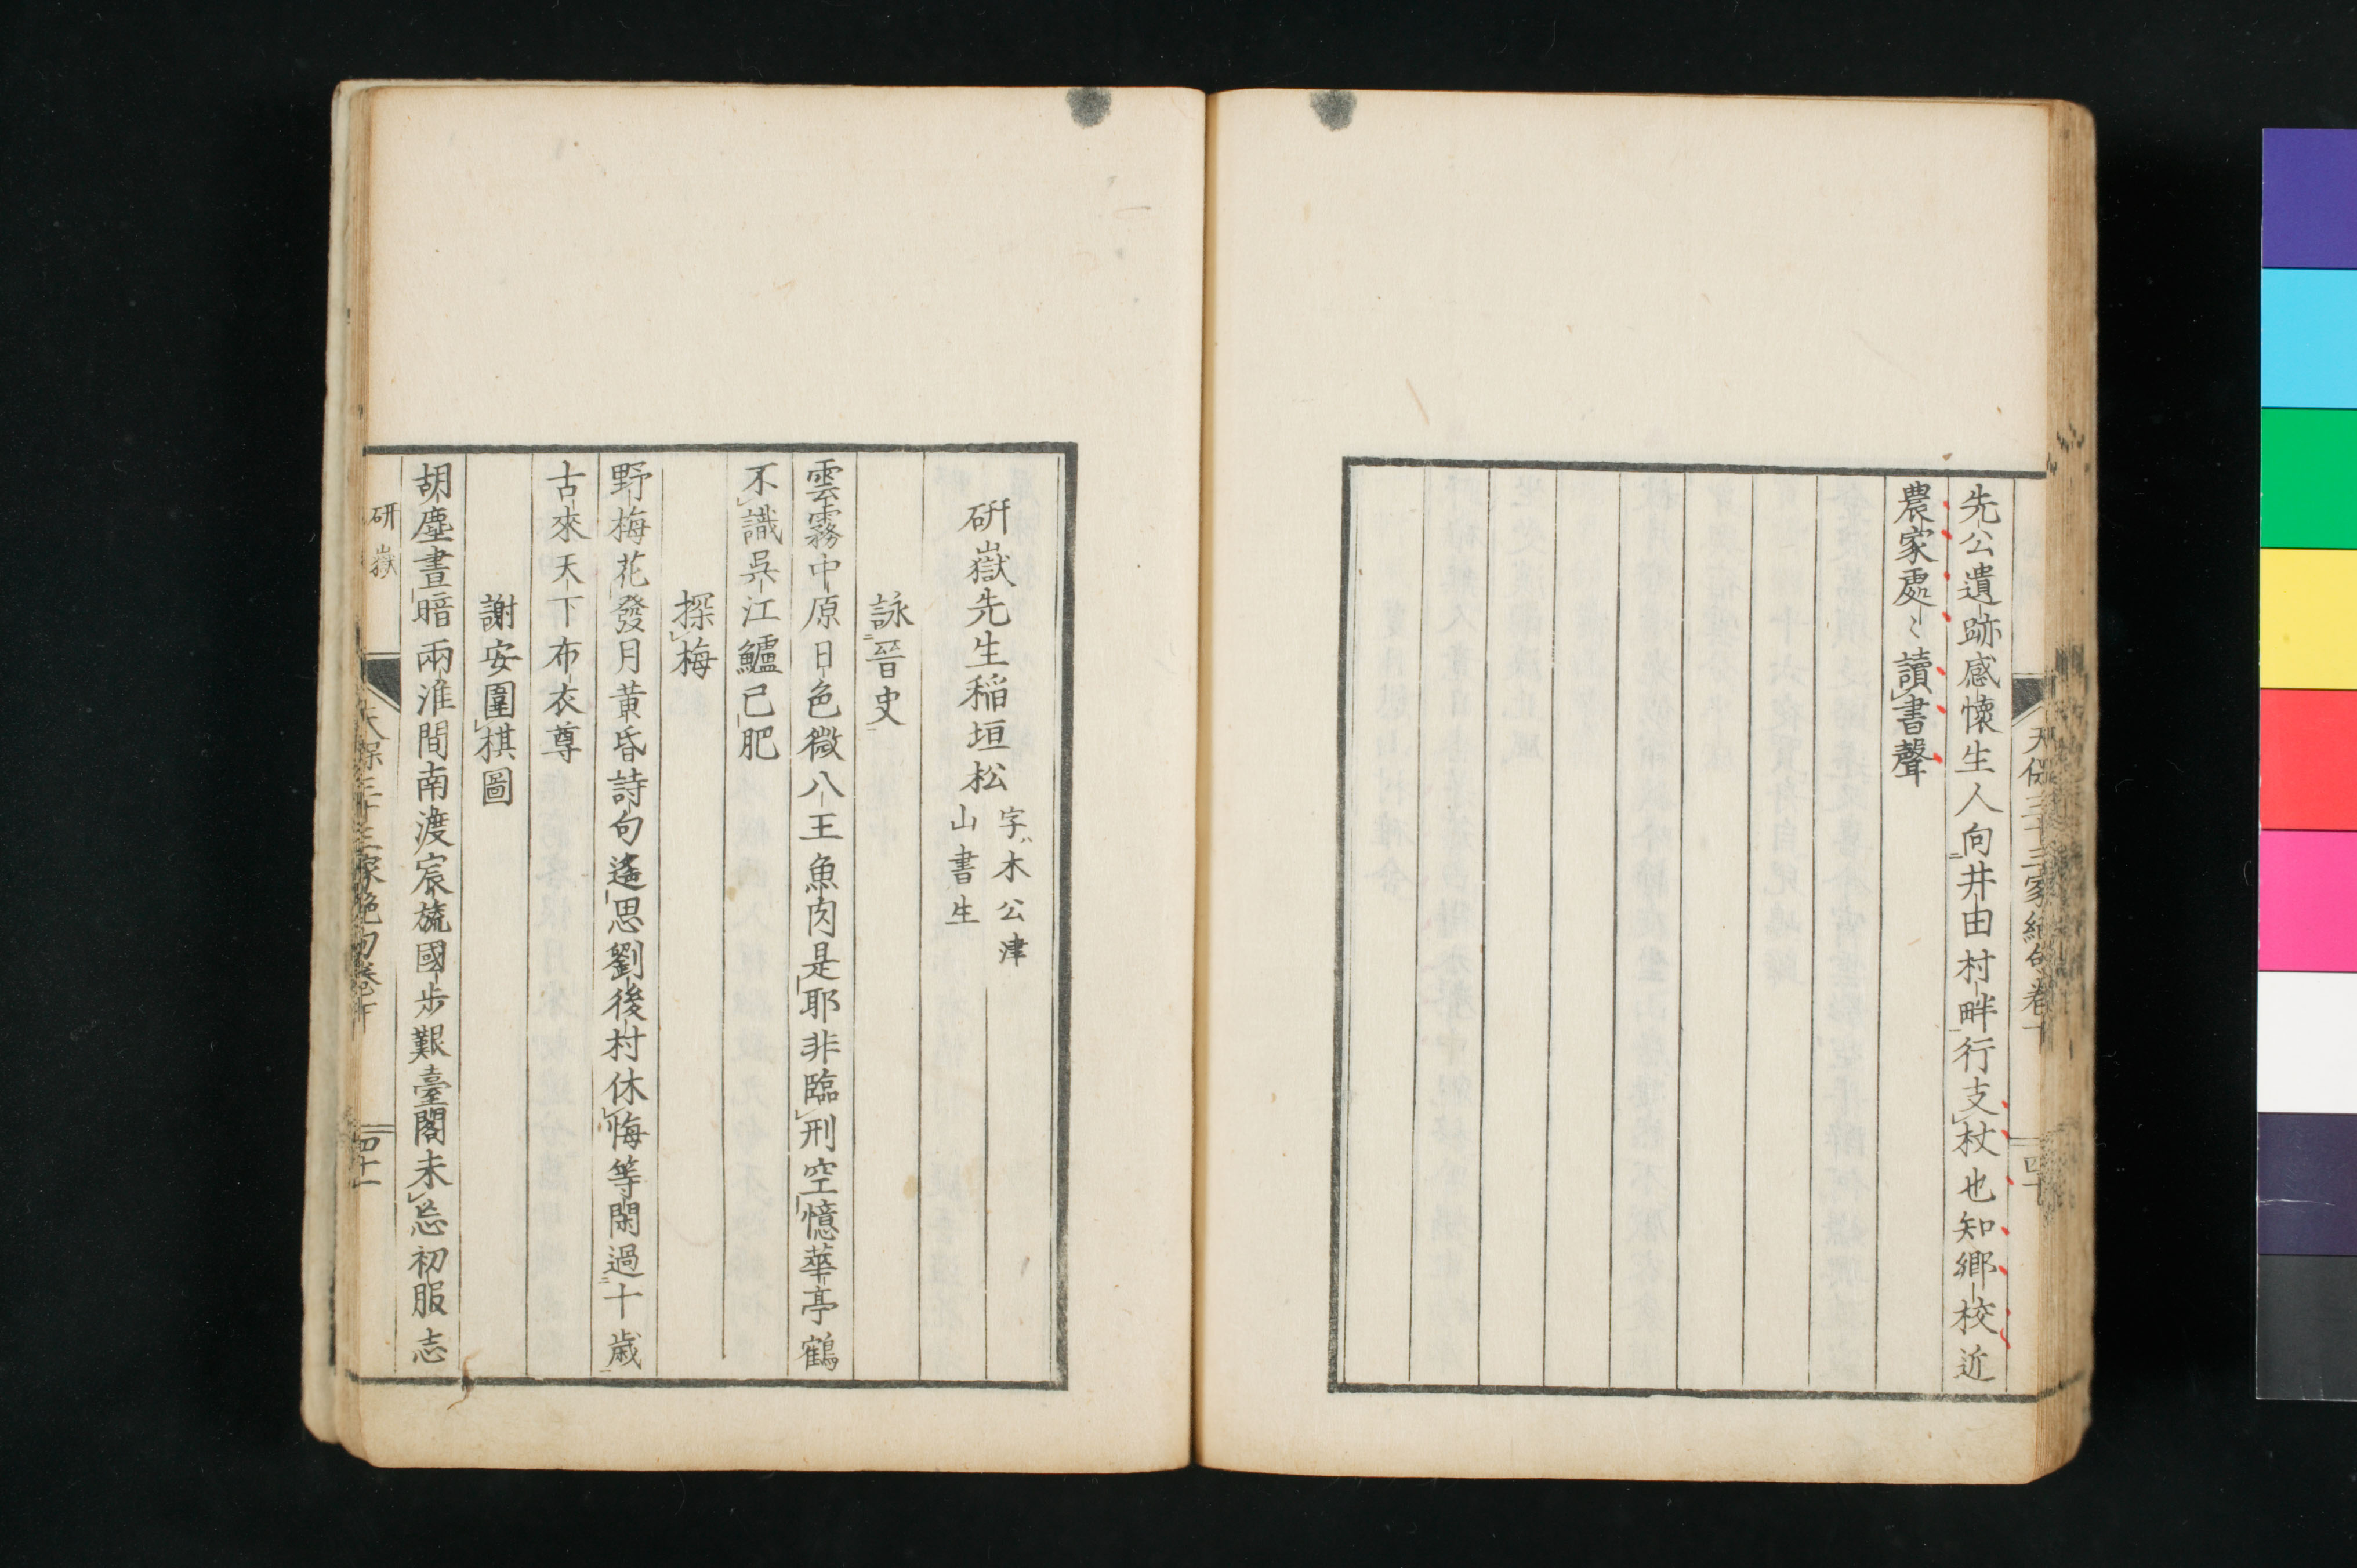 先公遺跡感懷生人向井由村畔行支杖也知鄉校近
農家處〻讀書聲
天保三十三家絕句卷十
四十
硏嶽先生稲垣松
字木公津
山書生
詠晉史
雲霧中原日色微八王魚肉是耶非臨刑空憶華亭鶴
不識吳江鱸已肥
探梅
野梅花發月黃昏詩句遙思劉後村休悔等閑過十歲
古來天下布衣尊
謝安圍棋圖
胡塵晝暗兩淮間南渡宸旒國步艱臺閣未忘初服志
研嶽
天保三十三家絕句卷十
四十一